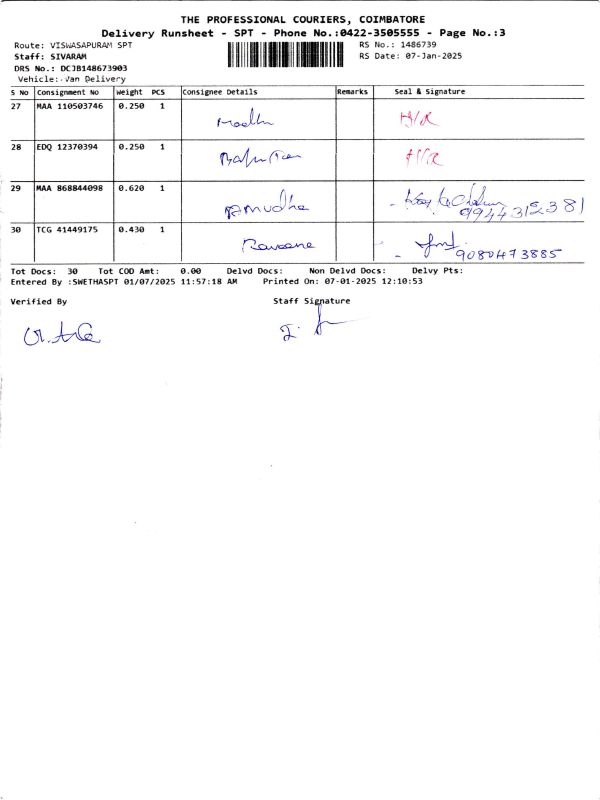 THE PROFESSIONAL COURIERS, COIMBATORE
Delivery Runsheet - SPT - Phone No.:0422-3505555 - Page No.:3
Route: VISWASAPURAM SPT RS No.: 1486739
Staff: SIVARAM RS Date: 07-Jan-2025
DRS No.: DCJB148673903
Vehicle: Van Delivery
S No Consignment No Weight PCS Consignee Details Remarks Seal & Signature
27 MAA 110503746 0.250 1
28 EDQ 12370394 0.250 1
29 MAA 868844098 0.620 1 Amudha 9944312381
30 TCG 41449175 0.430 1 9080473885
Tot Docs: 30 Tot COD Amt: 0.00 Delvd Docs: Non Delvd Docs: Delvy Pts:
Entered By :SWETHASPT 01/07/2025 11:57:18 AM Printed On: 07-01-2025 12:10:53
Verified By Staff Signature